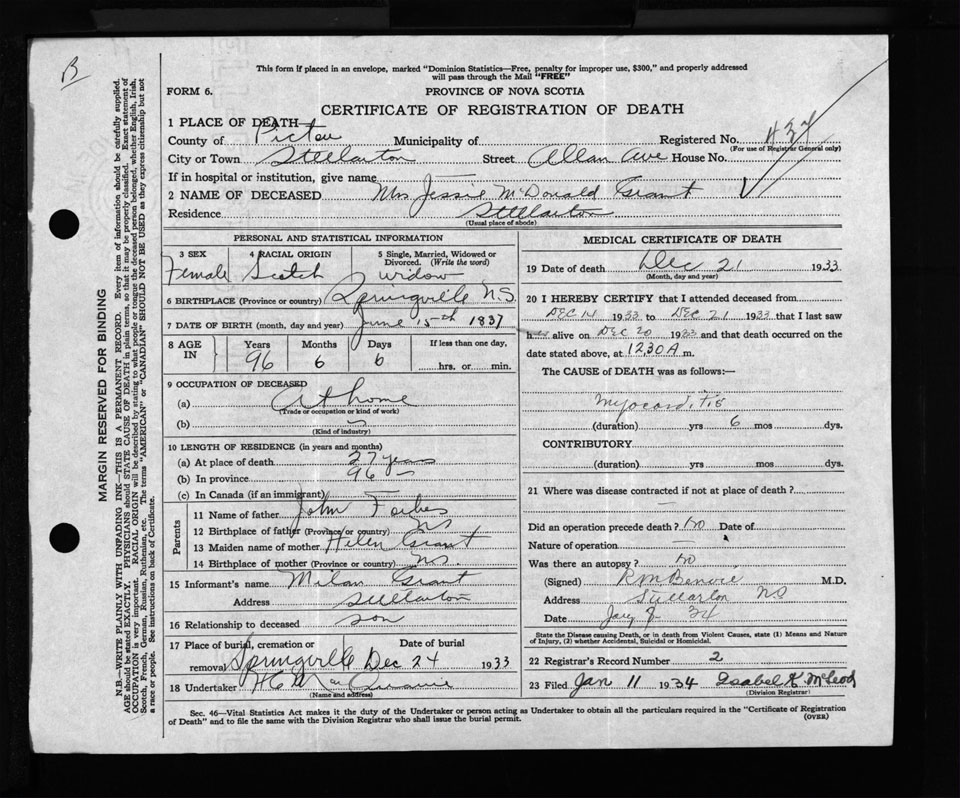 B
This form if placed in an envelope, marked "Dominion Statistics—Free, penalty for improper use, $300," and properly addressed
will pass through the Mail "FREE"
FORM 6.
PROVINCE OF NOVA SCOTIA
CERTIFICATE OF REGISTRATION OF DEATH
1 PLACE OF DEATH
County of Pictou Municipality of Registered No. 437
(For use of Registrar General only)
City or Town Stellarton Street Allan Ave House No.
If in hospital or institution, give name —
2 NAME OF DECEASED Mrs Jessie McDonald Grant
Residence Stellarton
(Usual place of abode)
PERSONAL AND STATISTICAL INFORMATION
3 SEX 4 RACIAL ORIGIN 5 Single, Married, Widowed or Divorced. (Write the word)
Female Scotch Widow
6 BIRTHPLACE (Province or country) Springville N.S.
7 DATE OF BIRTH (month, day and year) June 15th 1837
8 AGE IN Years Months Days If less than one day,
96 6 6 hrs. or min.
9 OCCUPATION OF DECEASED
(a) At home
(Trade or occupation or kind of work)
(b)
(Kind of industry)
10 LENGTH OF RESIDENCE (in years and months)
(a) At place of death 27 years
(b) In province 96
(c) In Canada (if an immigrant) —
Parents
11 Name of father John Forbes
12 Birthplace of father (Province or country) NS
13 Maiden name of mother Helen Grant
14 Birthplace of mother (Province or country) N.S.
15 Informant's name Milan Grant
Address Stellarton
16 Relationship to deceased son
17 Place of burial, cremation or removal Date of burial
Springville Dec 24 1933
18 Undertaker H C
(Name and address)
MEDICAL CERTIFICATE OF DEATH
19 Date of death Dec 21 1933
(Month, day and year)
20 I HEREBY CERTIFY that I attended deceased from
DEC 14 1933 to DEC 21 1933 that I last saw
h alive on DEC 20 1933 and that death occurred on
date stated above, at 1230 A m.
The CAUSE of DEATH was as follows:—
Myocarditis
(duration) yrs 6 mos dys.
CONTRIBUTORY
(duration) yrs mos dys.
21 Where was disease contracted if not at place of death?
—
Did an operation precede death? no Date of
Nature of operation —
Was there an autopsy? no
(Signed) R M Benvie M.D.
Address Stellarton NS
Date Jany 34
State the Disease causing Death, or in death from Violent Causes, state (1) Means and Nature
of Injury, (2) whether Accidental, Suicidal or Homicidal.
22 Registrar's Record Number 2
23 Filed Jan 11 1934 Isabel K McLeod
(Division Registrar)
Sec. 46—Vital Statistics Act makes it the duty of the Undertaker or person acting as Undertaker to obtain all the particulars required in the "Certificate of Registration
of Death" and to file the same with the Division Registrar who shall issue the burial permit.
(OVER)
MARGIN RESERVED FOR BINDING
N.B.—WRITE PLAINLY WITH UNFADING INK—THIS IS A PERMANENT RECORD. Every item of information should be carefully supplied.
AGE should be stated EXACTLY. PHYSICIANS should STATE CAUSE OF DEATH in plain terms, so that it may be properly classified. Exact statement of
OCCUPATION is very important. RACIAL ORIGIN will be described by stating to what people or tongue the deceased person belonged, whether English, Irish,
Scotch, French, German, Russian, Ruthenian, etc. The terms "AMERICAN" or "CANADIAN" SHOULD NOT BE USED as they express citizenship but not
a race or people. See instructions on back of Certificate.